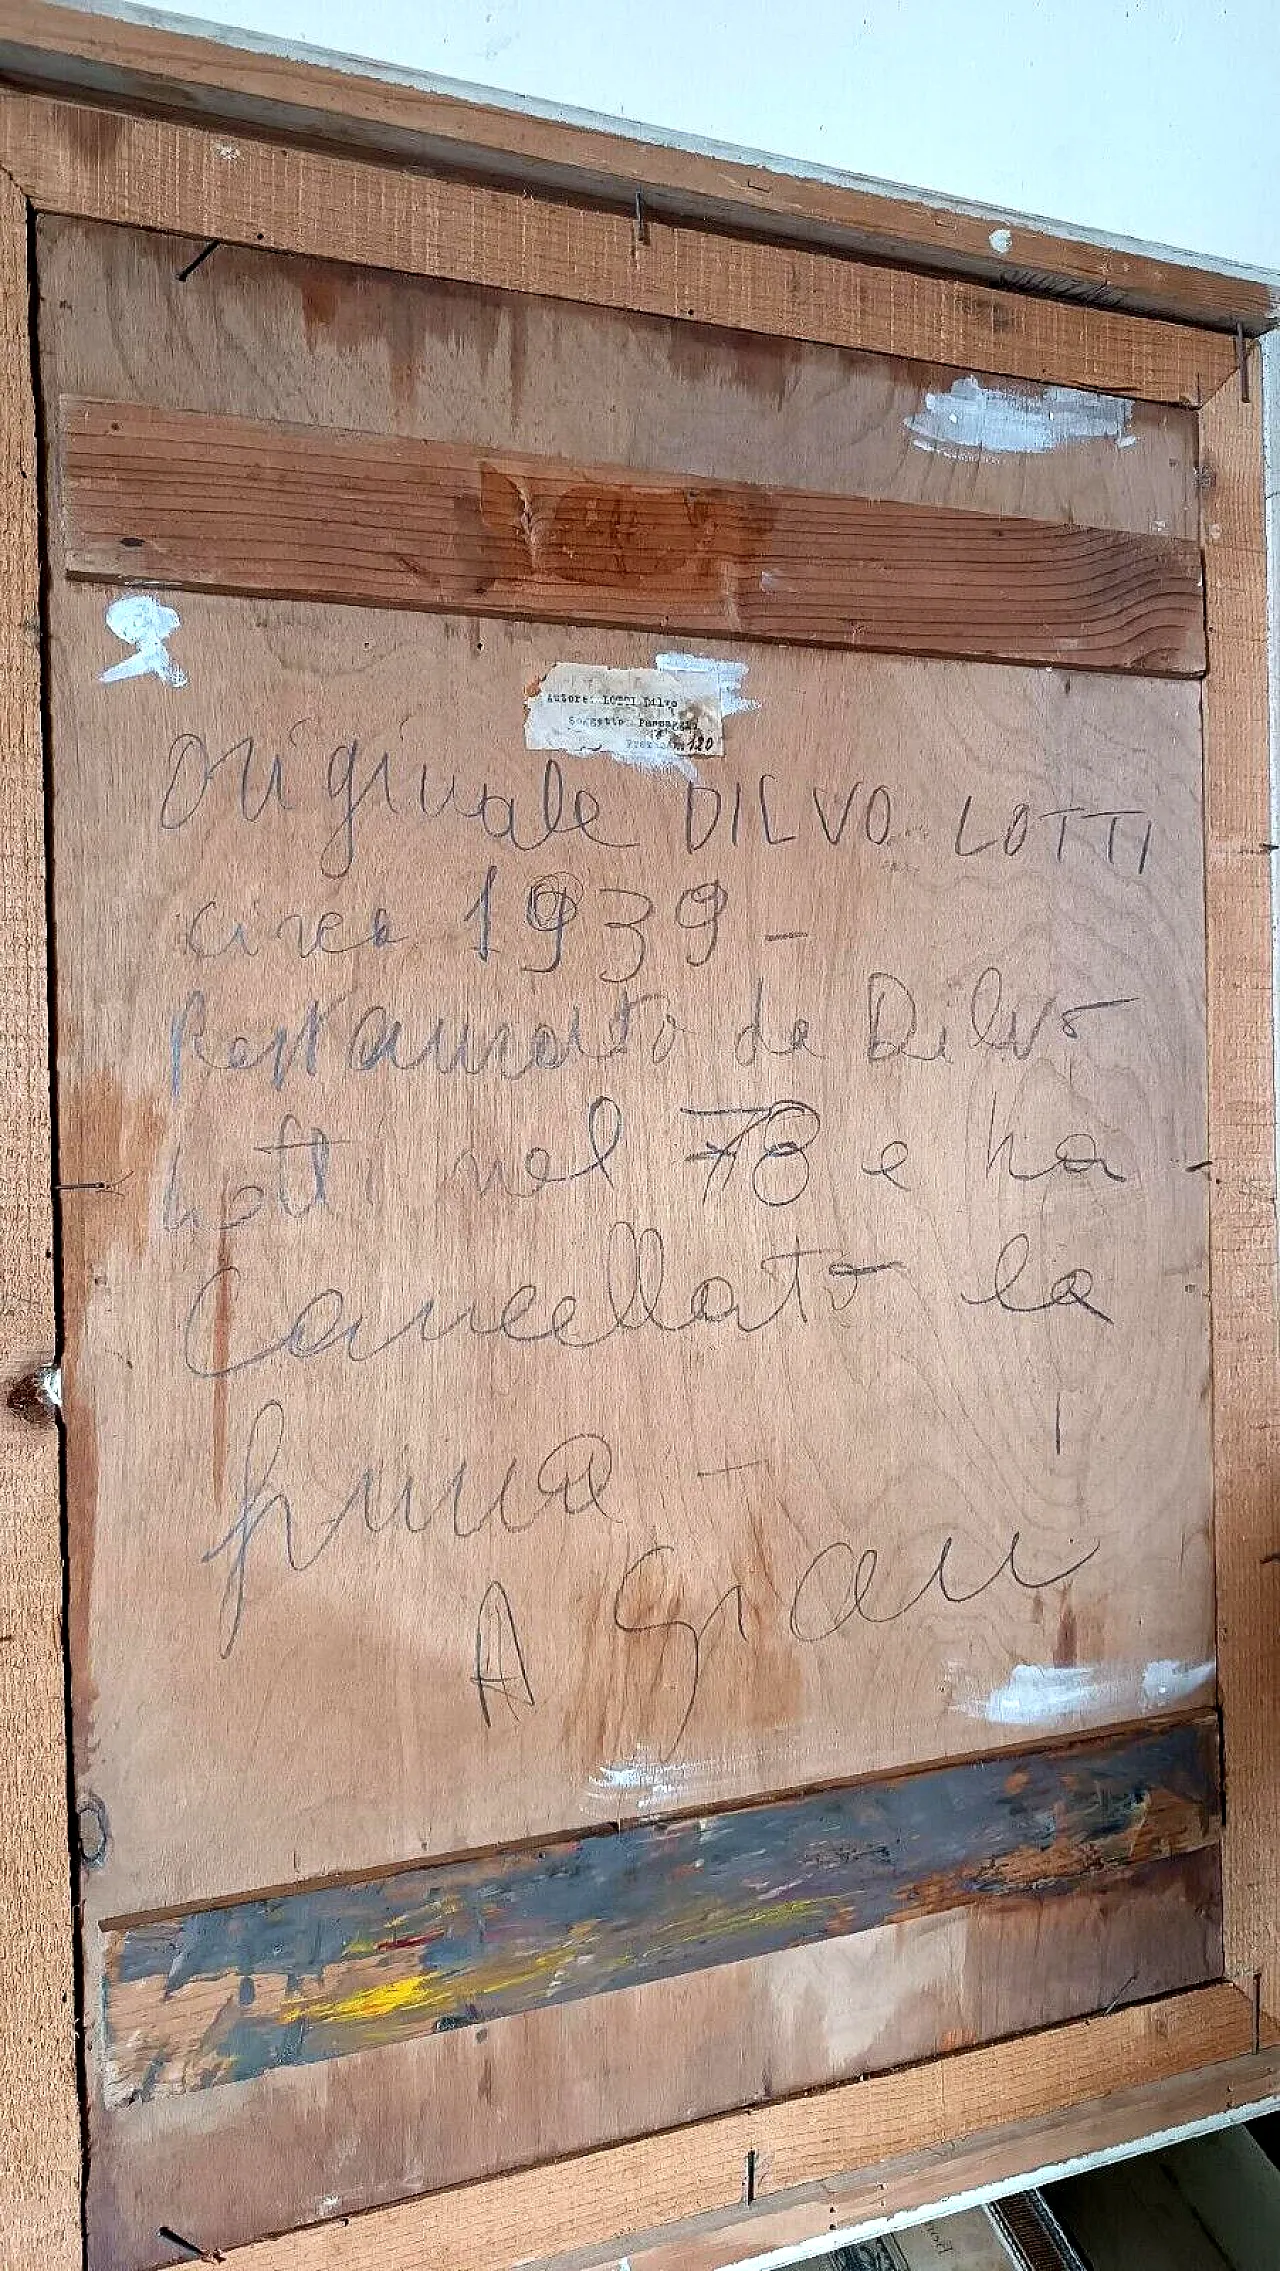 Autore: LOTTI Dilvo
Soggetto: Paesaggio
120
Originale DILVO LOTTI
circa 1939 -
Restaurato da Dilvo
Lotti nel 78 e ha
Cancellato la
firma -
A